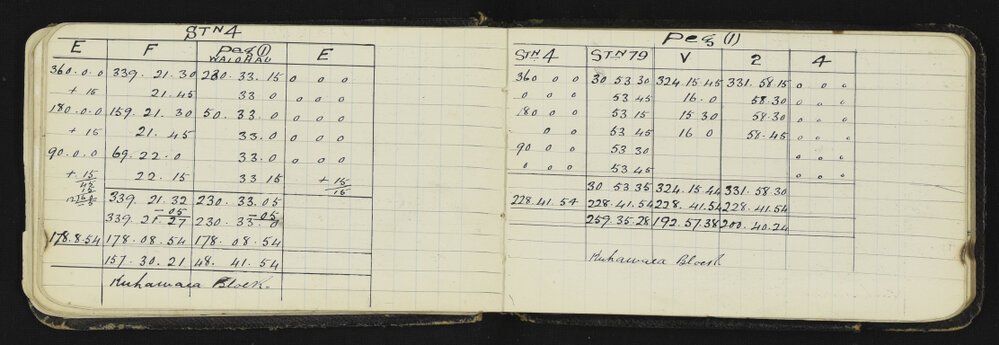 STN 4
E F Peg (1) E
WAIOHAU
360.0.0 339.21.30 230.33.15 0 0 0
+15 21.45 33 0 0 0 0
180.0.0 159.21.30 50.33.0 0 0 0
+15 21.45 33.0 0 0 0
90.0.0 69.22.0 33.0 0 0 0
+15 22.15 33 15 +15
339.21.32 230.33.05
-05 -05
339.21.27 230.33.0
178.8.54 178.08.54 178.08.54
157.30.21 48.41.54
Kuhawaea Block.
Peg (1)
STN 4 STN 79 V 2 4
360 0 0 30 53.30 324.15.45 331.58.15 0 0 0
0 0 0 53 45 16.0 58.30 0 0 0
180 0 0 53 15 15 30 58.30 0 0 0
0 0 53 45 16 0 58.45 0 0 0
90 0 0 53 30 0 0 0
0 0 0 53.45 0 0 0
30 53.35 324.15.44 331.58.30
228.41.54 228.41.54 228.41.54 228.41.54
259.35.28 192.57.38 200.40.24
Kuhawaea Block